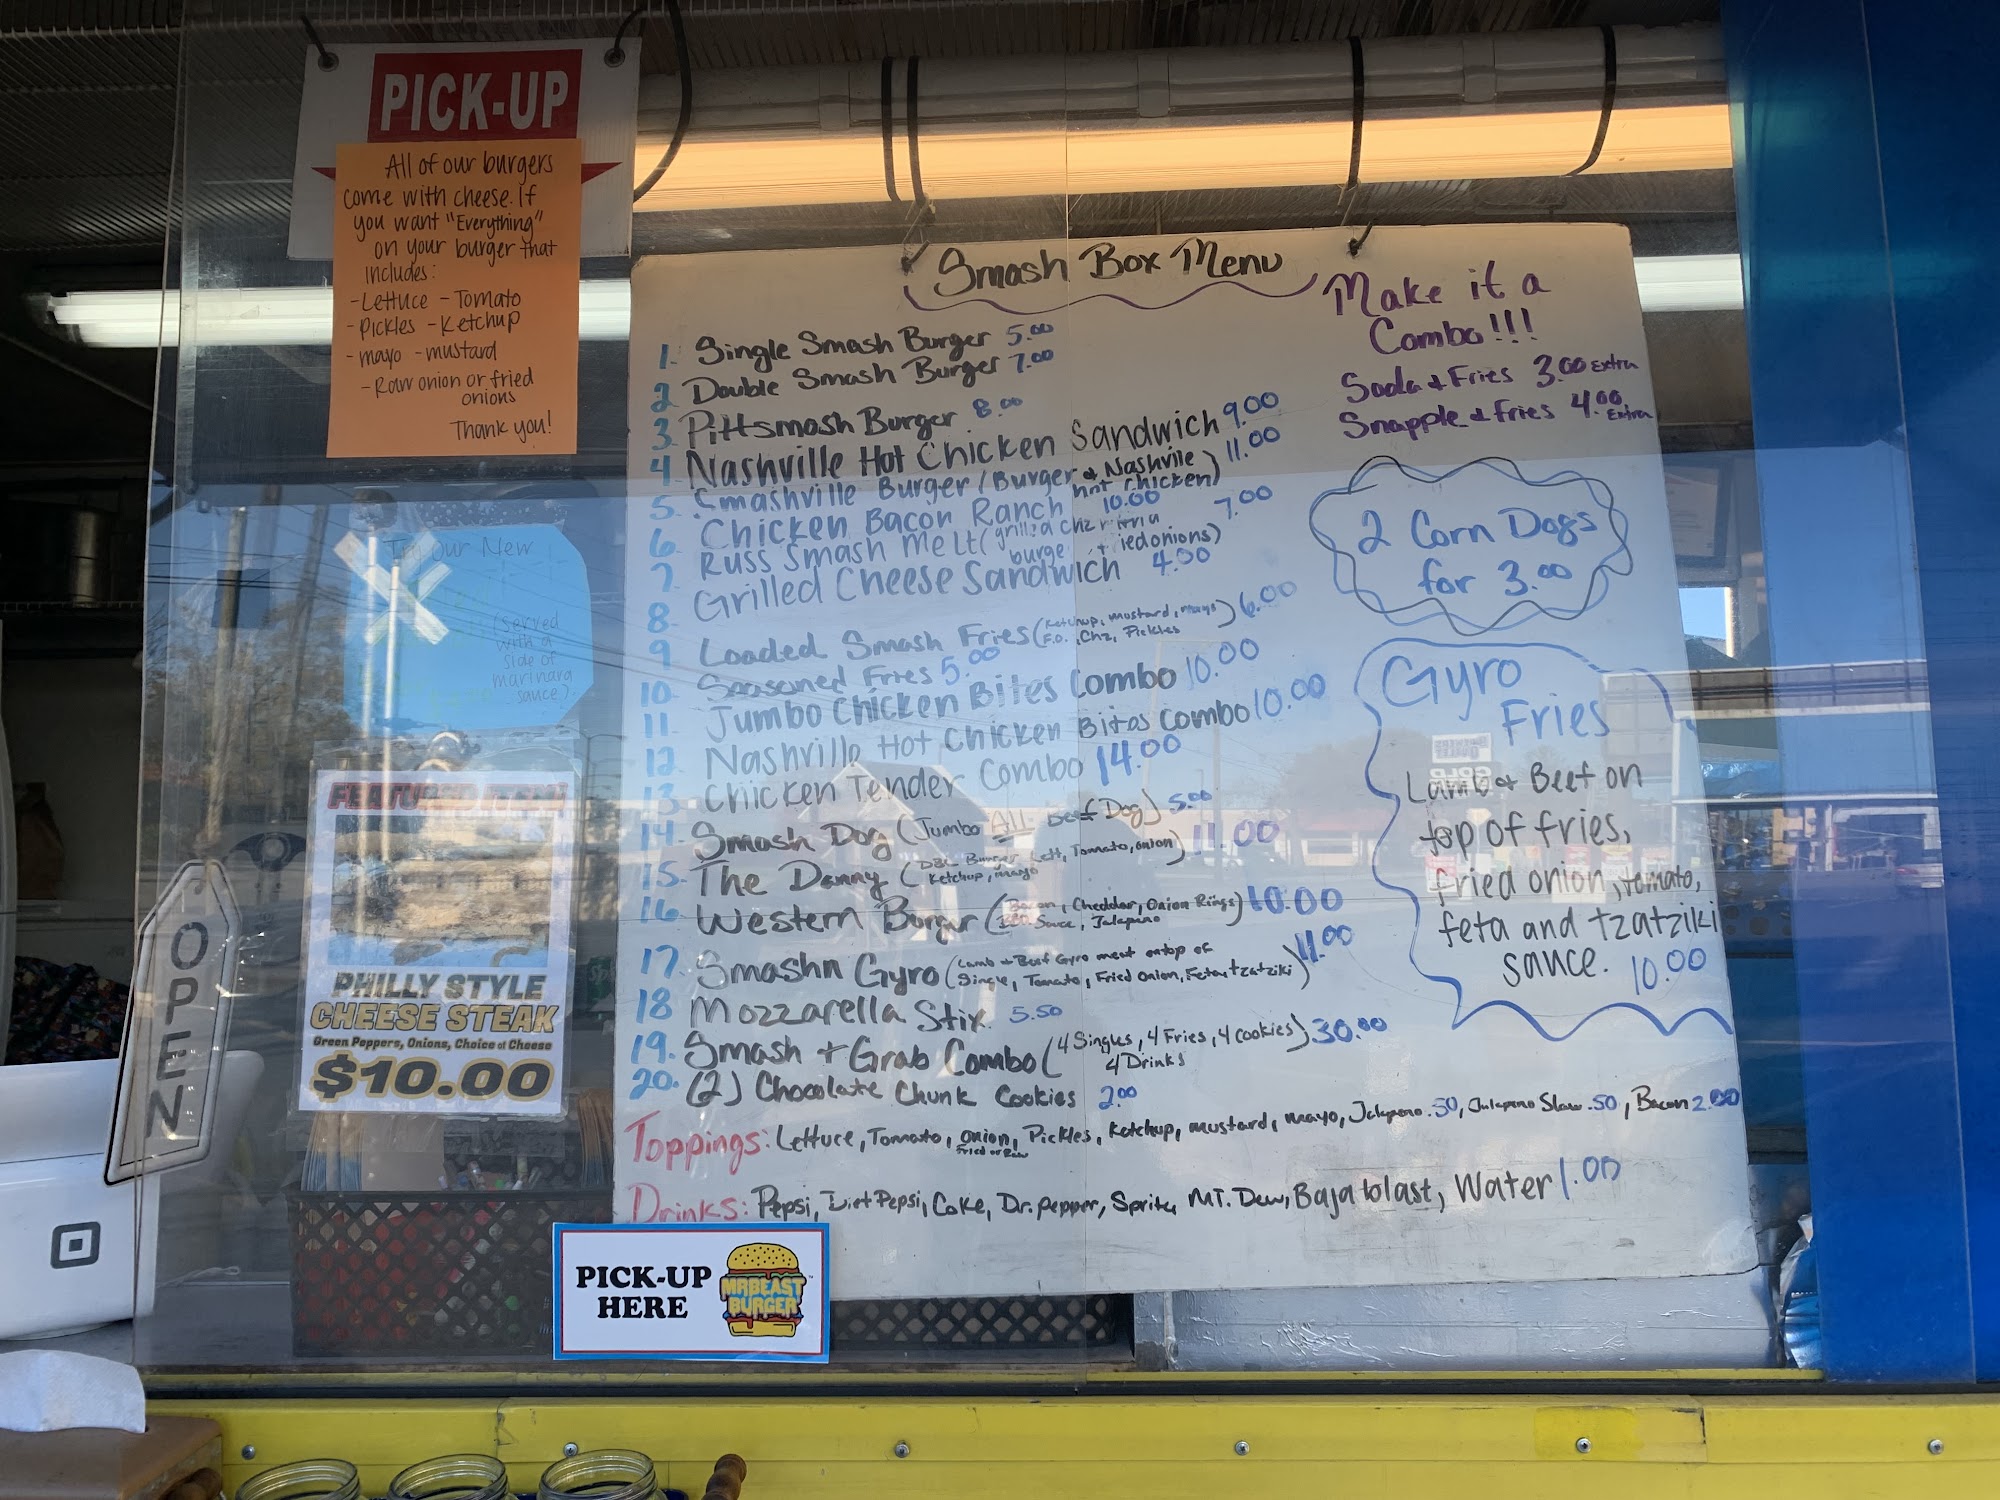 PICK-UP
All of our burgers
come with cheese. If
you want "Everything"
on your burger that
includes:
-Lettuce -Tomato
-Pickles -Ketchup
-mayo -mustard
-Raw onion or fried
onions
Thank you!
Try our New
(served
with a
side of
marinara
sauce)
FEATURED ITEM!
PHILLY STYLE
CHEESE STEAK
Green Peppers, Onions, Choice of Cheese
$10.00
OPEN
Smash Box Menu
1. Single Smash Burger 5.00
2. Double Smash Burger 7.00
3. Pittsmash Burger 8.00
4. Nashville Hot Chicken Sandwich 9.00
5. Smashville Burger (Burger & Nashville hot chicken) 11.00
6. Chicken Bacon Ranch 10.00
7. Russ Smash Melt (grilled chz burge + ied onions) 7.00
8. Grilled Cheese Sandwich 4.00
9. Loaded Smash Fries (Ketchup, mustard, mayo F.O., Chz, Pickles) 6.00
10. Seasoned Fries 5.00
11. Jumbo Chicken Bites Combo 10.00
12. Nashville Hot Chicken Bites Combo 10.00
13. Chicken Tender Combo 14.00
14. Smash Dog (Jumbo All Beef Dog) 5.00
15. The Danny (Dbl Burger, Lett, Tomato, onion Ketchup, mayo) 11.00
16. Western Burger (Bacon, Cheddar, Onion Rings BBQ Sauce, Jalapeno) 10.00
17. Smashn Gyro (Lamb & Beef Gyro meat ontop of Single, Tomato, Fried Onion, Feta, tzatziki) 11.00
18 Mozzarella Stix 5.50
19. Smash + Grab Combo (4 Singles, 4 Fries, 4 cookies) 30.00
4 Drinks
20. (2) Chocolate Chunk Cookies 2.00
Toppings: Lettuce, Tomato, onion, Pickles, Ketchup, mustard, mayo, Jalapeno .50, Jalapeno Slaw .50, Bacon 2.00
Fried or Raw
Drinks: Pepsi, Diet Pepsi, Coke, Dr. Pepper, Sprite, MT. Dew, Baja blast, Water 1.00
Make it a
Combo!!!
Soda & Fries 3.00 Extra
Snapple & Fries 4.00 Extra
2 Corn Dogs
for 3.00
Gyro
Fries
Lamb & Beef on
top of fries,
fried onion, tomato,
feta and tzatziki
sauce. 10.00
PICK-UP
HERE
MRBEAST
BURGER